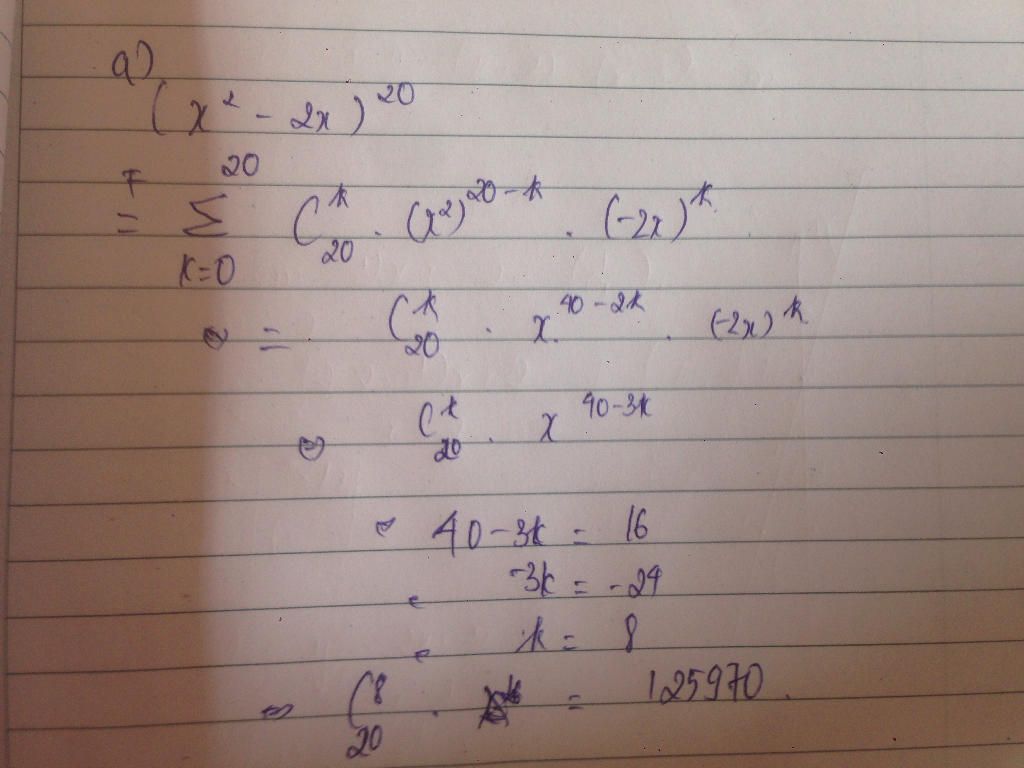 a)
(x² - 2x)²⁰
= Σ_{k=0}^{20} C_{20}^{k} . (x²)^{20-k} . (-2x)^{k}
= C_{20}^{k} . x^{40-2k} . (-2x)^{k}
C_{20}^{k} . x^{40-3k}
40-3k = 16
-3k = -24
k = 8
⇒ C_{20}^{8} . = 125970.